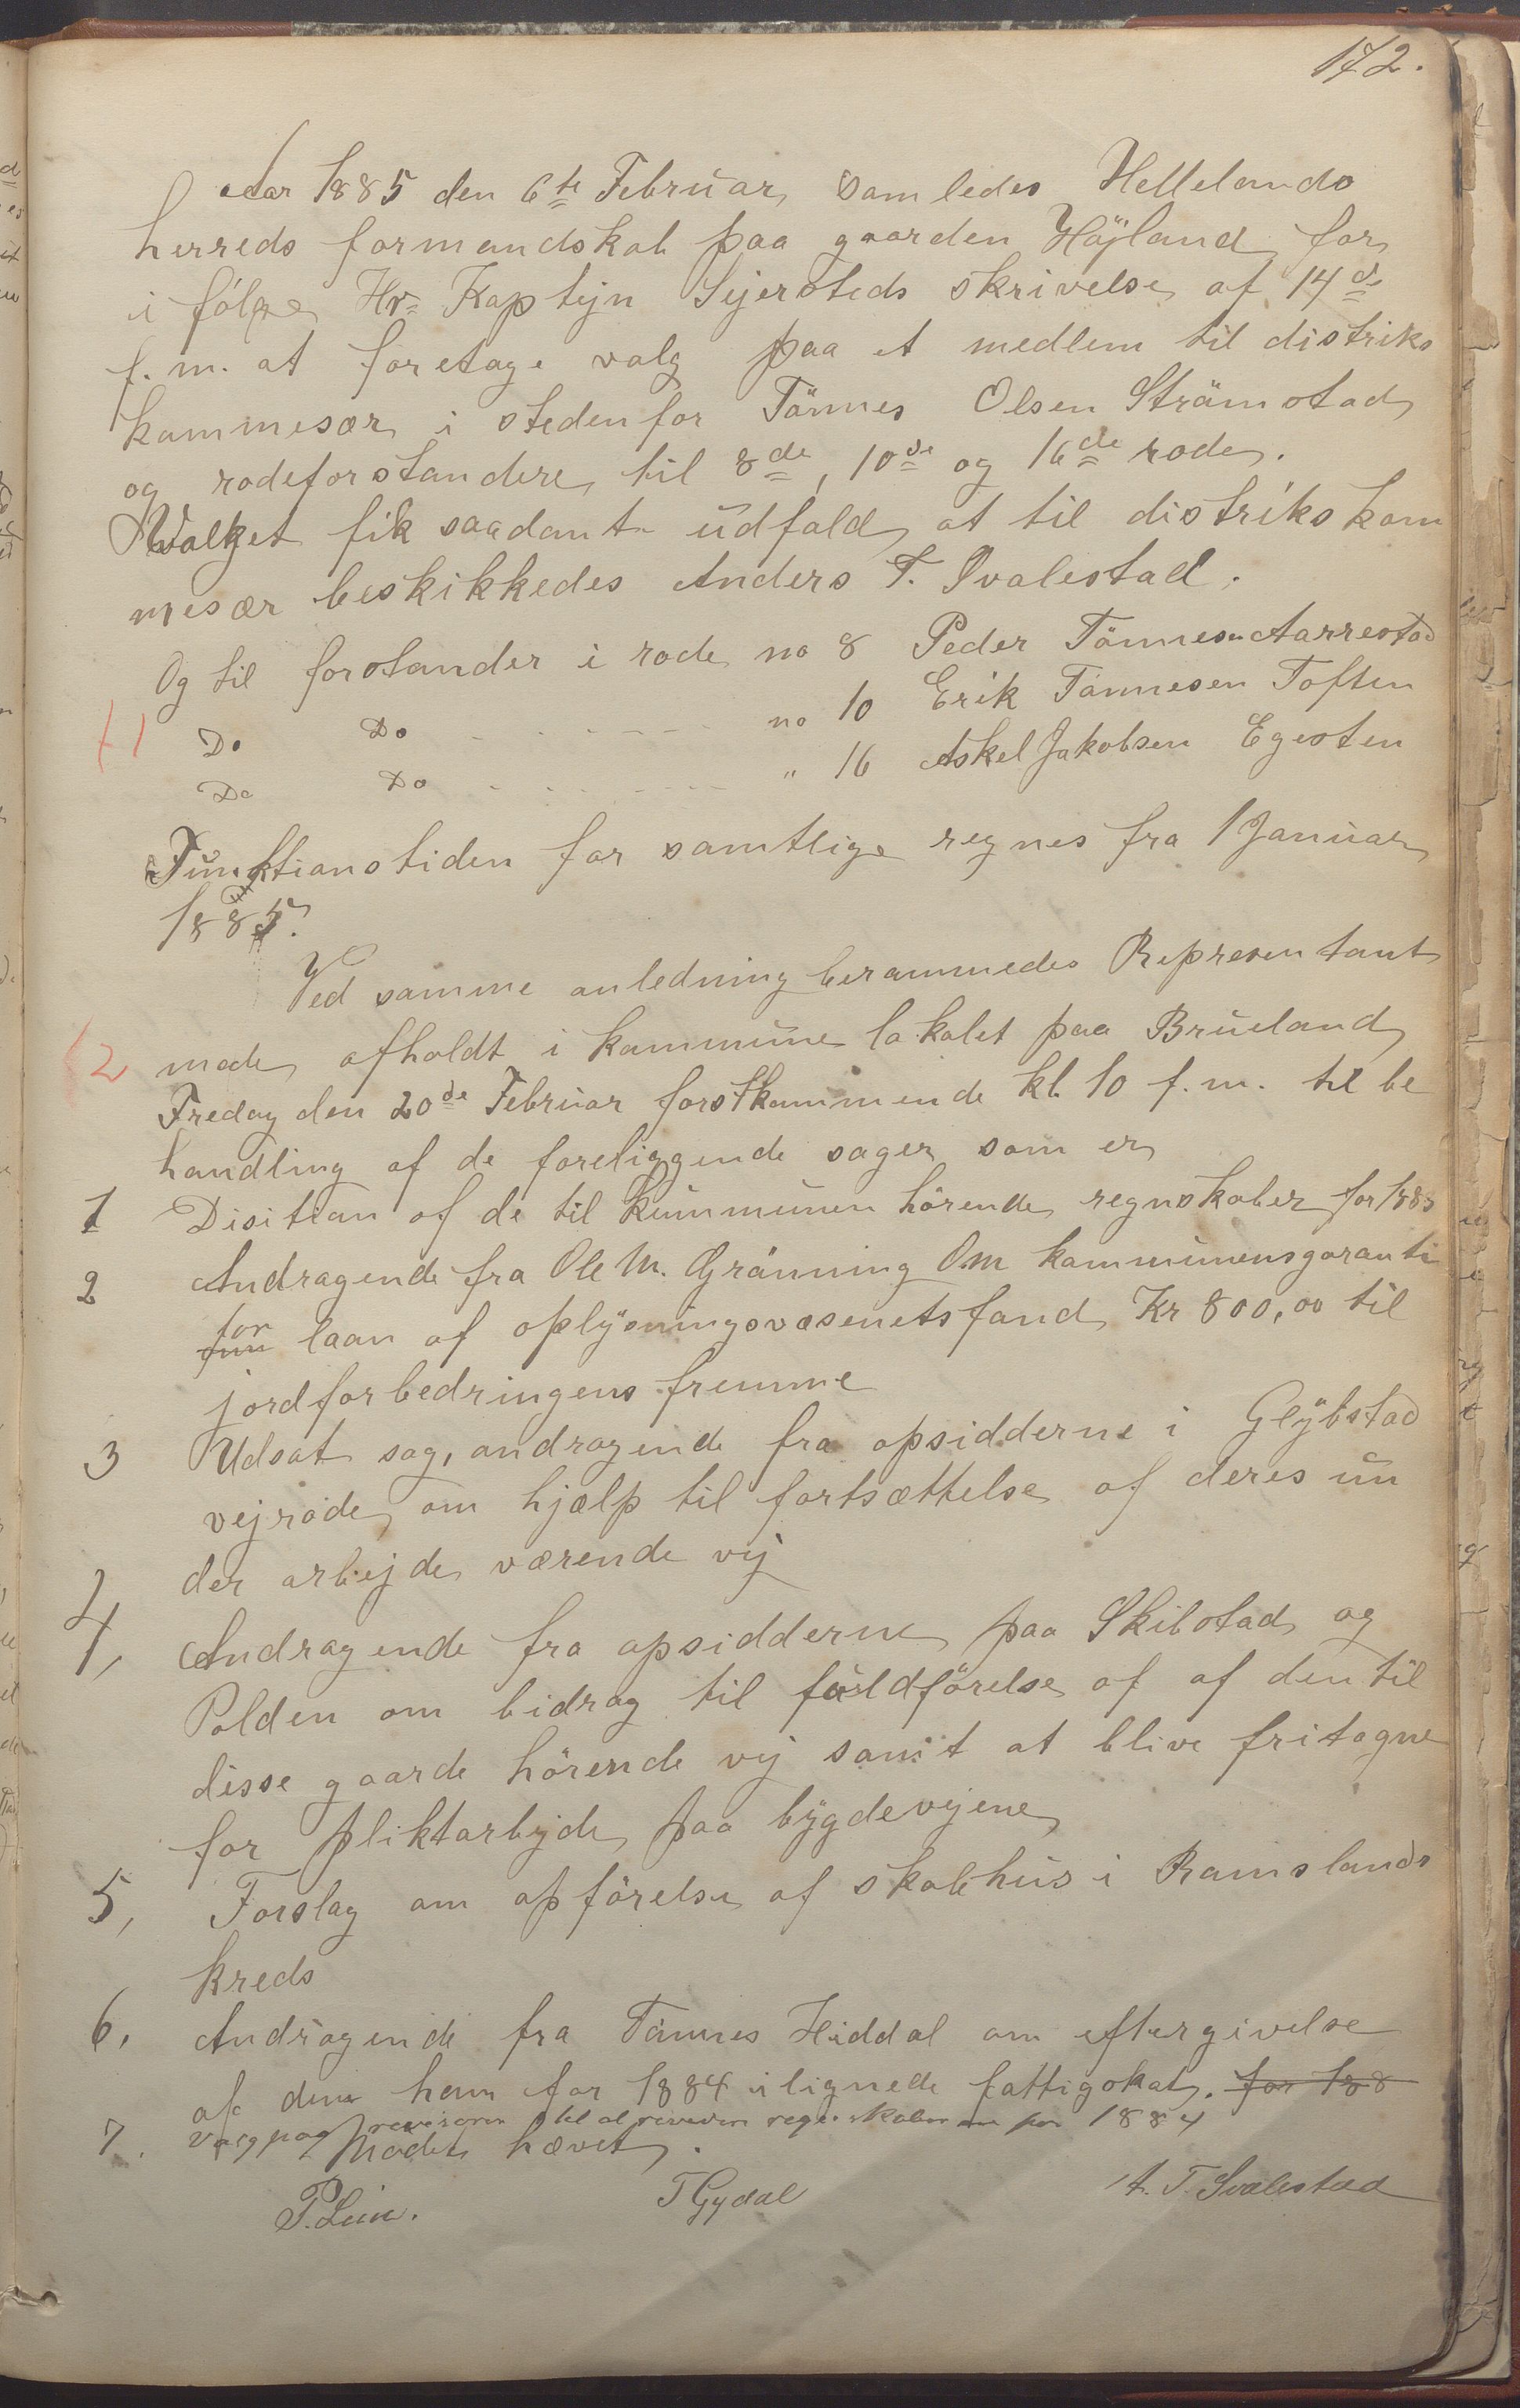 172.
Aar 1885 den 6te Februar samledes Hellelands
herreds formandskab paa gaarden Höjland for
i følge Hr Kaptejn Sejersteds skrivelse af 14de
f. m. at foretage valg paa et medlem til distriks
kommesær i stedenfor Tönnes Olsen Strömstad
og rodeforstandere til 8de, 10de og 16de rode.
Valget fik saadant udfald at til distrikskom
mesær beskikkedes Anders T. Svalestad.
Og til forstander i rode no 8 Peder Tönnesen Aarrestad
11 Do Do - - - - - - no 10 Erik Tönnesen Toften
Do Do - - - - - - " 16 Askel Jakobsen Egesten
Funktionstiden for samtlige regnes fra 1 Januar
1885.
Ved samme anledning berammedes Representant
12 møde afholdt i kommune lokalet paa Brueland
Fredag den 20de Februar førstkommende kl. 10 f. m. til be
handling af de foreliggende sager som er
1 Disition af de til kummunen hörende regnskaber for 1883
2 Andragende fra Ole M. Grönning Om kommunensgaranti
for laan af oplysningsvæsenets fond Kr 800,00 til
jordforbedringens fremme
3 Udsat sag, andragende fra opsidderne i Gljbstad
vejrode om hjælp til fortsættelse af deres un
der arbejde værende vej
4, Andragende fra opsidderne paa Skibstad og
Polden om bidrag til fuldførelse af af den til
disse gaarde hörende vej samt at blive fritagne
for pliktarbejde paa bygdevejene
5, Forslag om opförelse af skolehus i Ramslands
kreds
6. Andragende fra Tönnes Hiddal om eftergivelse
af den ham for 1884 ilignede fattigskat. for 188
7. Valg paa revisorer til at revidere regnskaberne for 1884
Mødet hævet.
P. Lein. T Gydal A. T. Svalestad